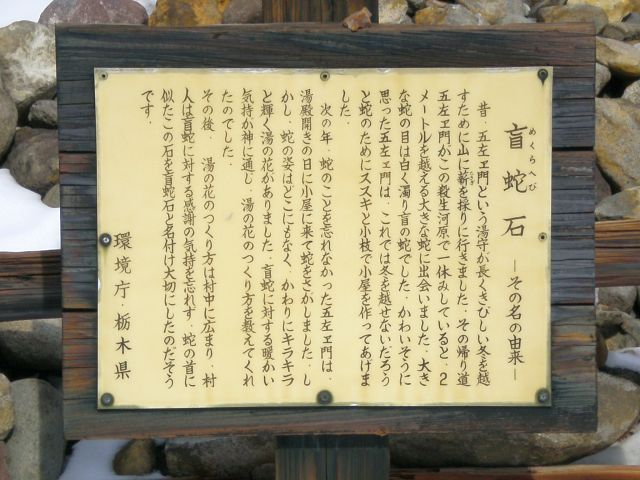 盲蛇石 ―その名の由来―
めくらへび
昔、五左ヱ門という湯守が長くきびしい冬を越
すために山に薪を採りに行きました。その帰り道
五左ヱ門がこの殺生河原で一休みしていると、2
メートルを越える大きな蛇に出会いました。大き
な蛇の目は白く濁り盲の蛇でした。かわいそうに
思った五左ヱ門は、これでは冬を越せないだろう
と蛇のためにススキと小枝で小屋を作ってあげま
した。
次の年、蛇のことを忘れなかった五左ヱ門は、
湯殿開きの日に小屋に来て蛇をさがしました。し
かし、蛇の姿はどこにもなく、かわりにキラキラ
と輝く湯の花がありました。盲蛇に対する暖かい
気持が神に通し、湯の花のつくり方を教えてくれ
たのでした。
その後、湯の花のつくり方は村中に広まり、村
人は盲蛇に対する感謝の気持を忘れず、蛇の首に
似たこの石を盲蛇石と名付け大切にしたのだそう
です。
環境庁・栃木県